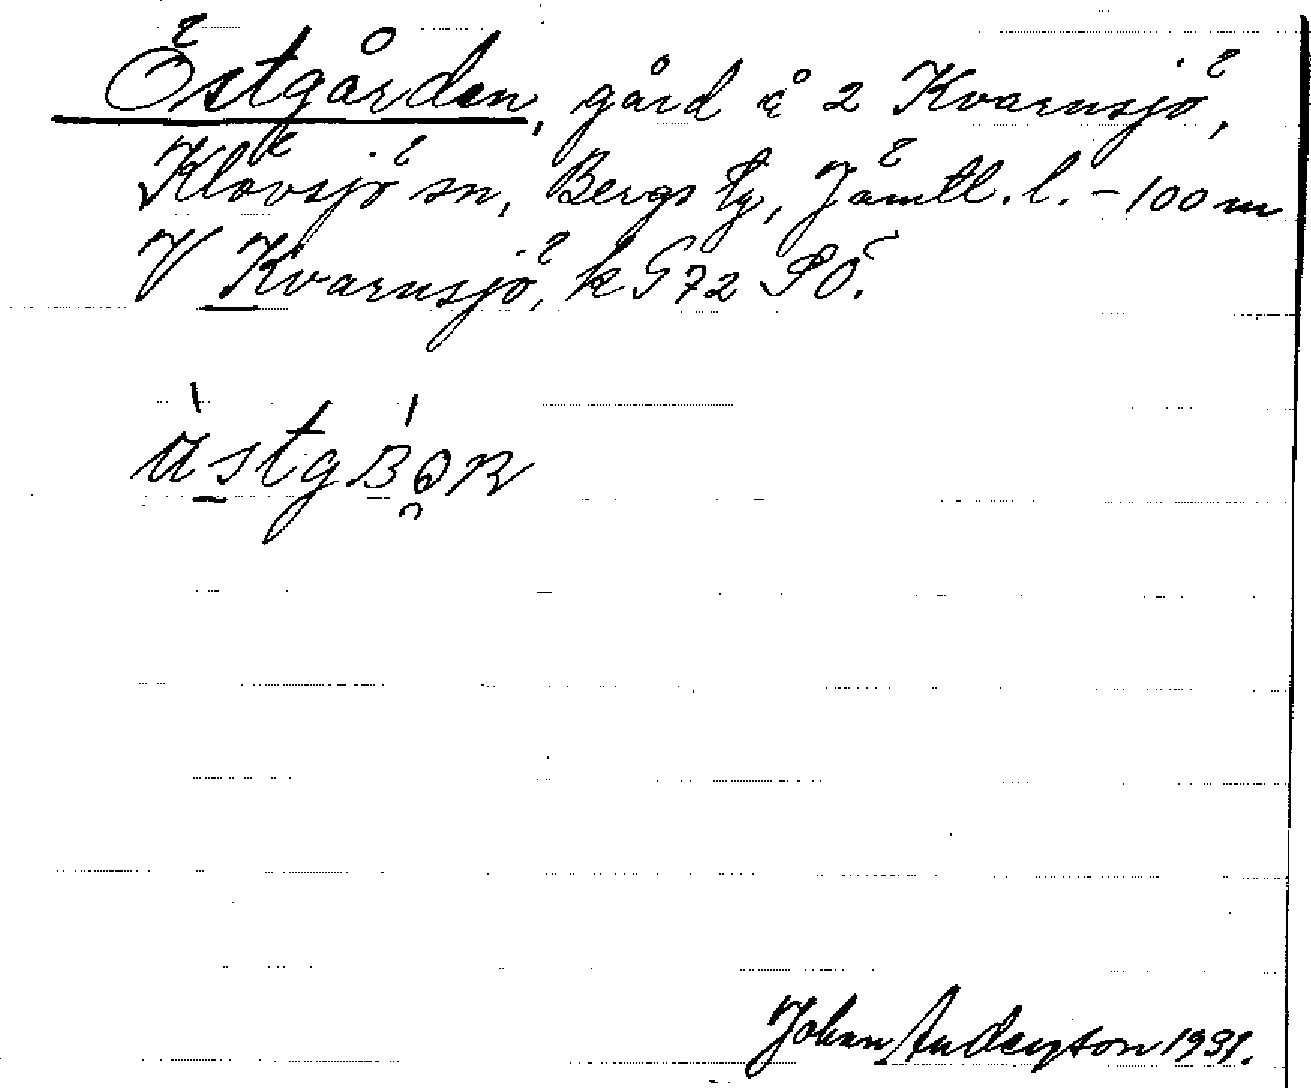 Östgården, gård å 2 Kvarnsjö,
Klövsjö sn, Bergs tg, Jämtl. l. - 100 m
V Kvarnsjö, k G 72 SÖ.
Johan Anderson 1931.